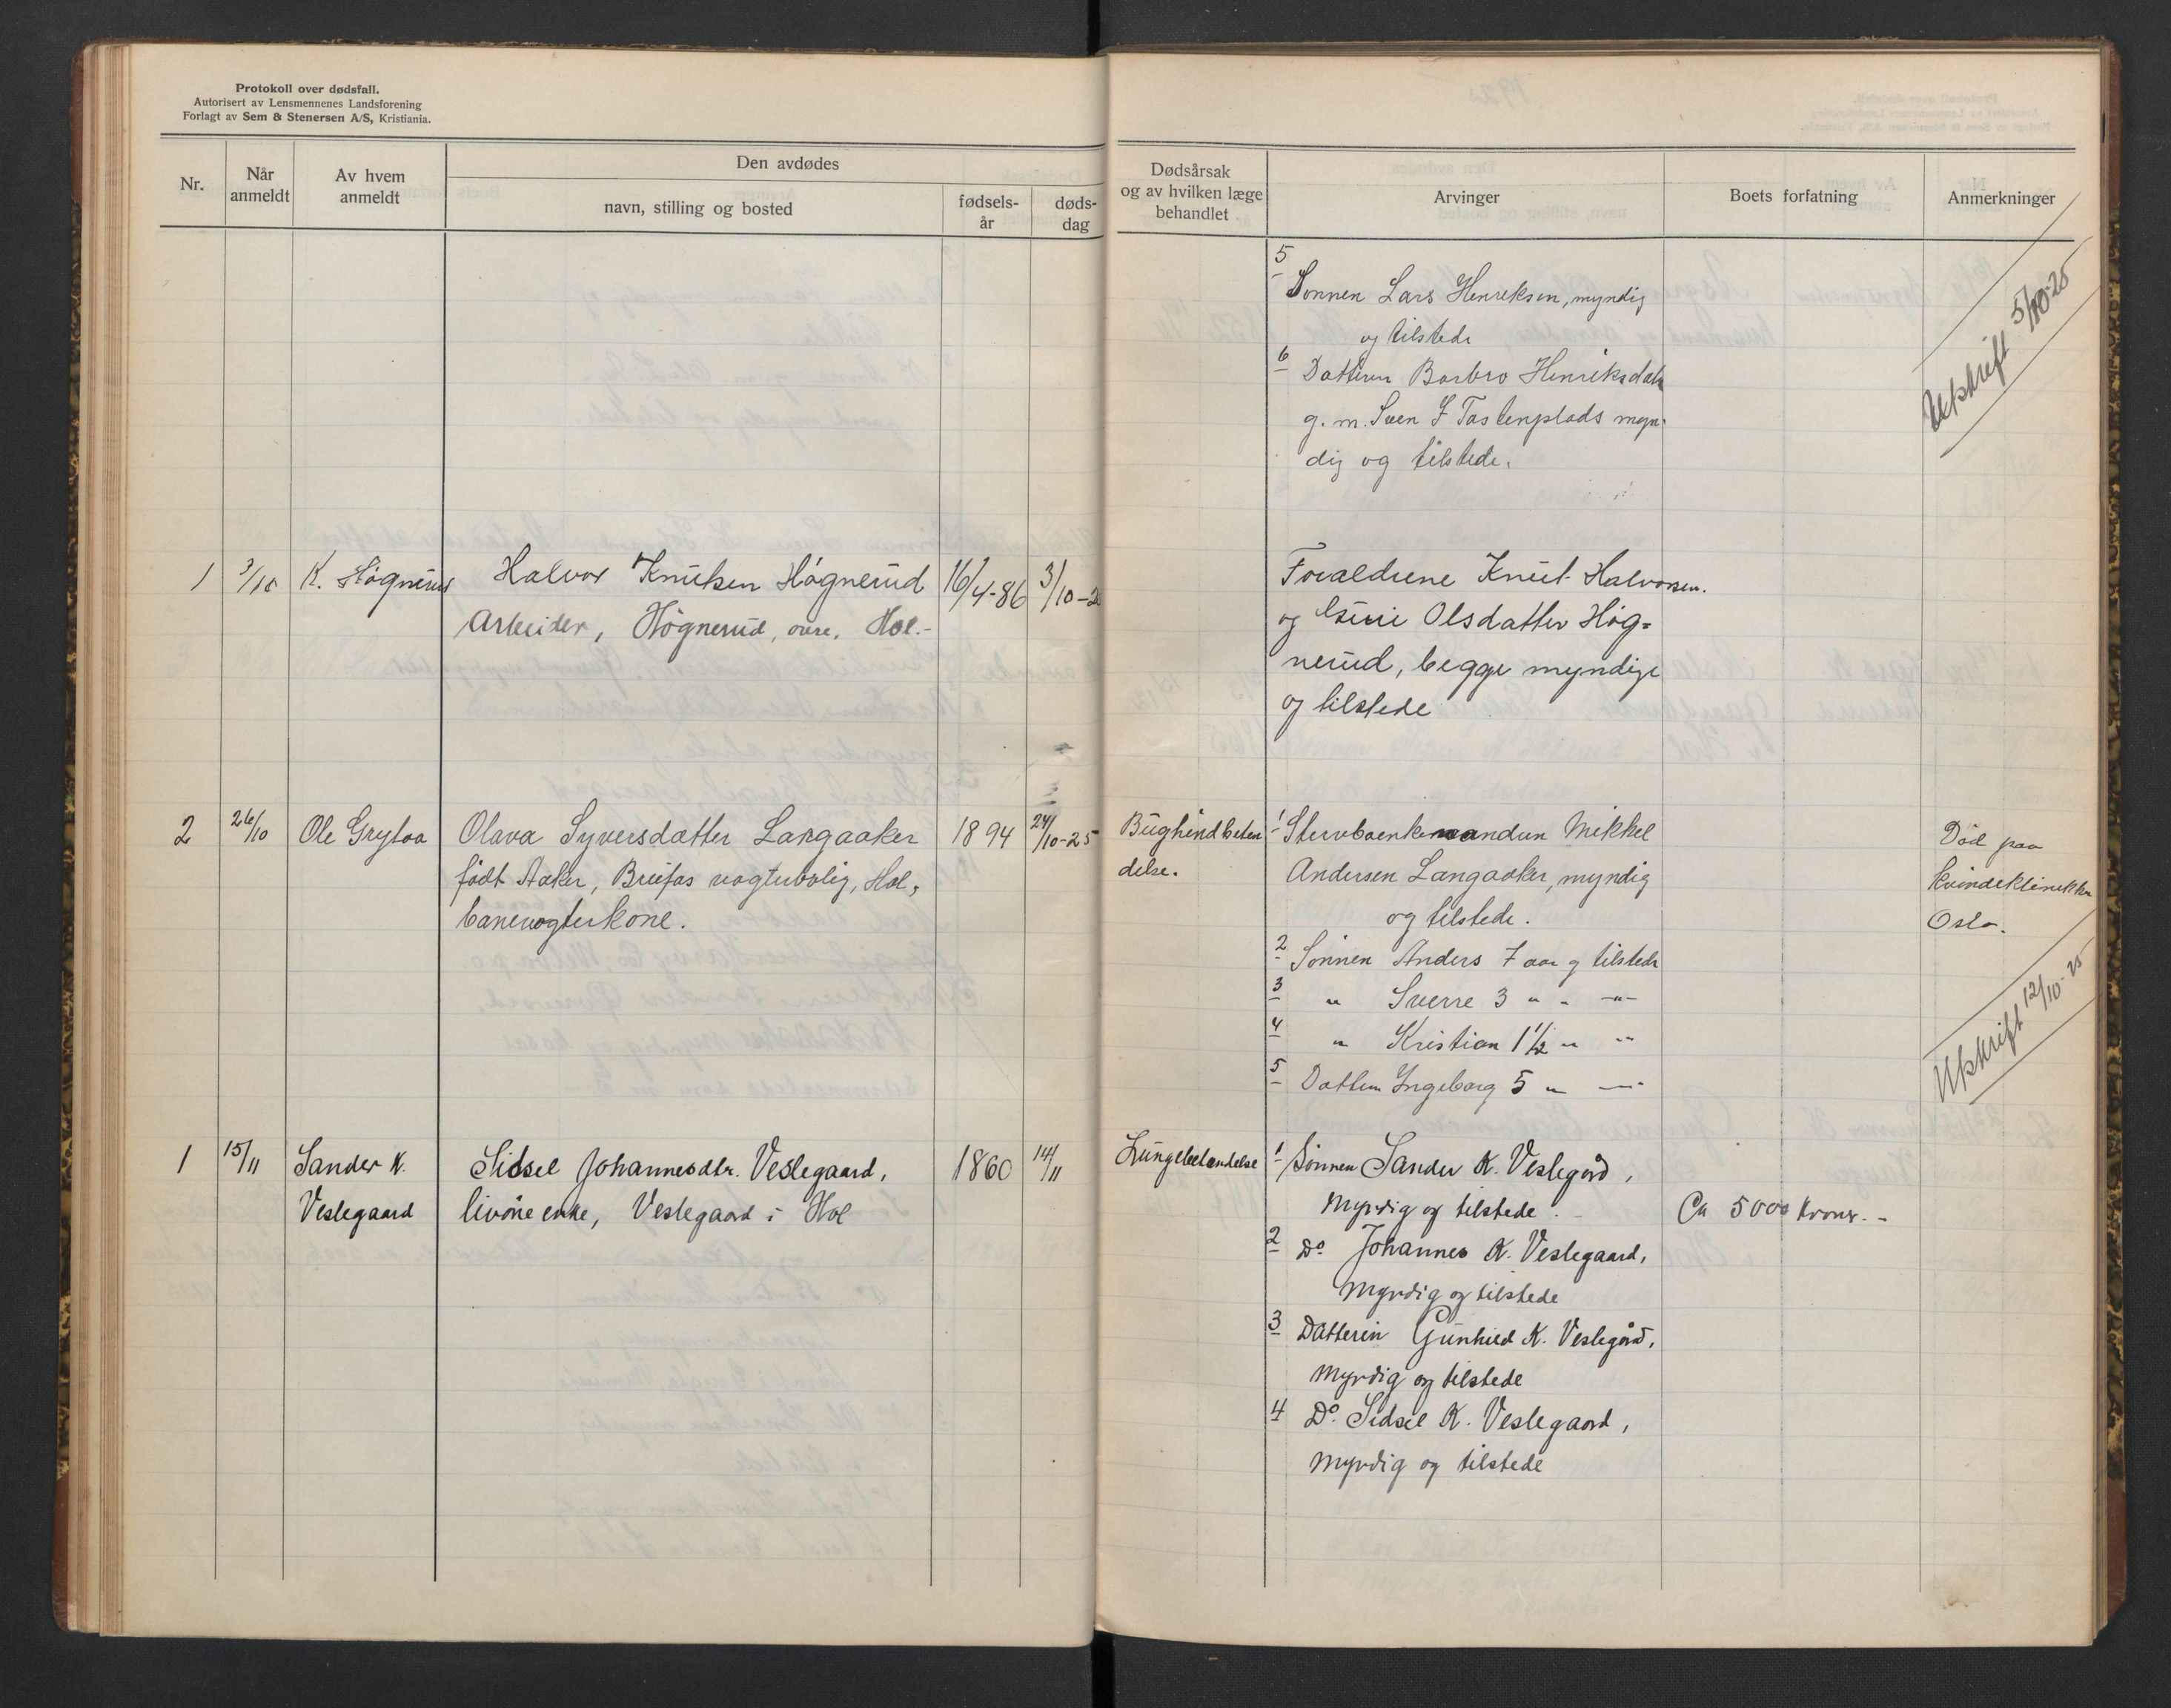 Protokoll over dødsfall.
Autorisert av Lensmennenes Landsforening
Forlagt av Sem & Stenersen A/S, Kristiania.
Nr.
Når anmeldt
Av hvem anmeldt
Den avdødes
navn, stilling og bosted
fødsels-år
døds-dag
Dødsårsak
og av hvilken læge
behandlet
Arvinger
Boets forfatning
Anmerkninger
5
Sønnen Lars Henriksen, myndig
og tilstede
6
Datteren Barbro Henriksdatr
g. m. Sven
myn-
dig og tilstede.
Utskrift 5/10-25
1 3/10 K. Høgnerud
Halvor Knutsen Høgnerud
Arbeider, Høgnerud, øvre, Hol.-
16/4-86
3/10-2
Forældrene Knut Halvorsen.
og Guri Olsdatter Høg=
nerud, begge myndige
og tilstede
2 26/10 Ole Grytaa
Olava Syversdatter Langaaker
født Aaker, vogterbolig, Hol,
banevogterkone.
1894
24/10-25
Bughindbeten
delse.
1 Stervboenkemanden Mikkel
Andersen Langaaker, myndig
og tilstede.
2 Sønnen Anders 7 aar og tilstede
3 " Sverre 3 " " -"-
4 " Kristian 1 1/2 " "
5 Datteren Ingeborg 5 " -"-
Død paa
kvindeklinikken
Oslo.
Utskrift 12/10-25
1 15/11 Sander K.
Veslegaard
Sidsel Johannesdtr. Veslegaard,
livøreenke, Veslegaard i Hol
1860
14/11
Lungebetændelse
1 Sønnen Sander K. Veslegård,
Myndig og tilstede.
Ca 5000 kroner.-
2 Do Johannes K. Veslegaard,
Myndig og tilstede
3 Datteren Gunhild K. Veslegård,
Myndig og tilstede
4 Do. Sidsel K. Veslegaard,
Myndig og tilstede